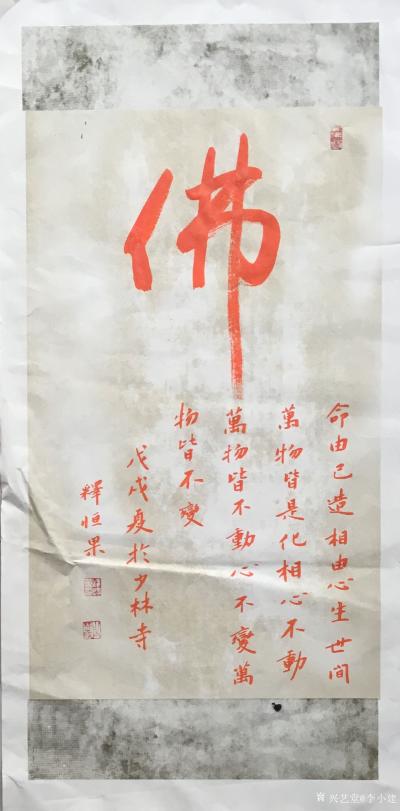 佛
命由己造相由心生世间
萬物皆是化相心不動
萬物皆不動心不變萬
物皆不變
戊戌夏於少林寺
釋恒果
兴艺堂@李小健